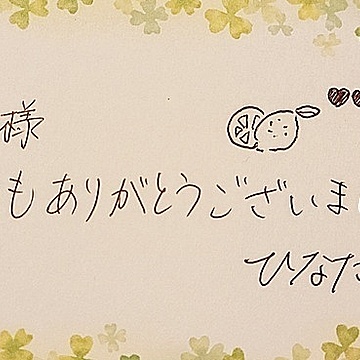 様
もありがとうございま
ひなた